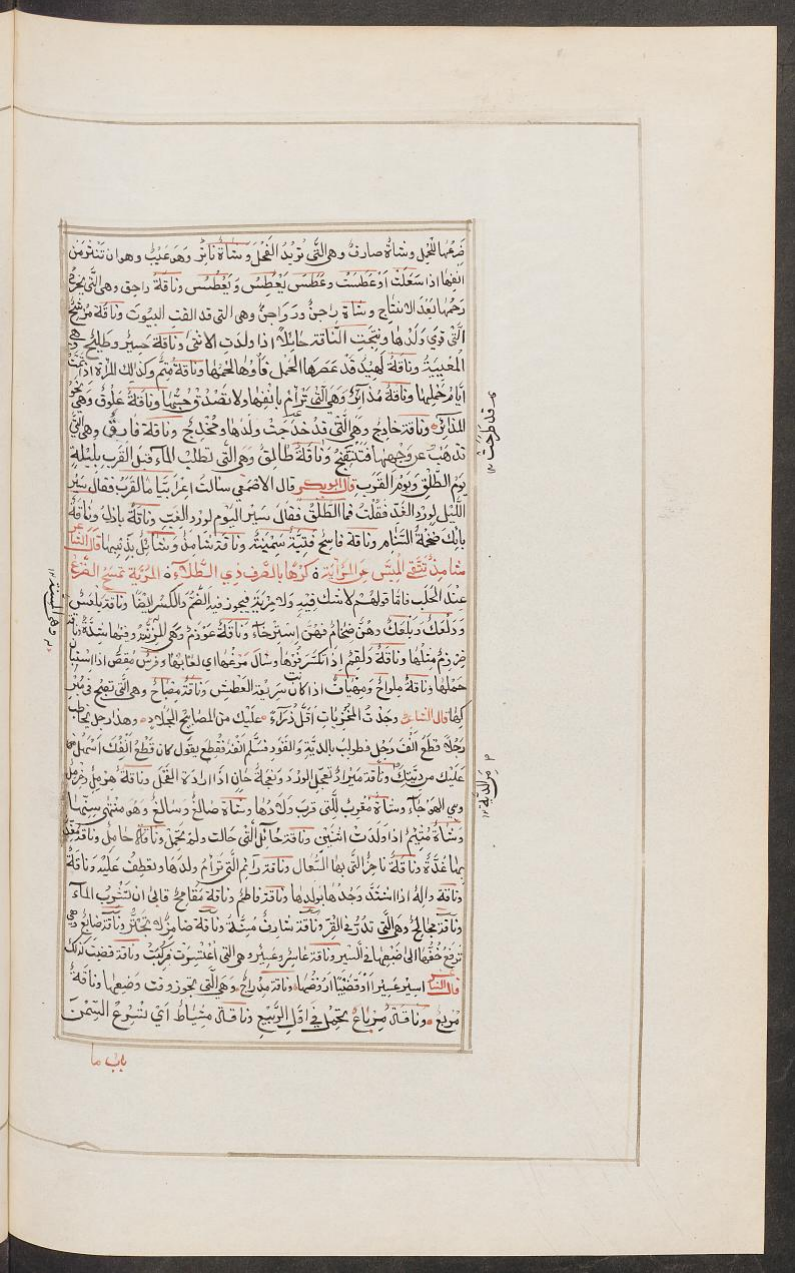 ضرعها للنجل وشاة صارف وهي التي تريد الفحل وشاة ناثر وهو عيب وهو ان تنثر من
انفها اذا سعلت او عطست وعطس يعطس ويعطس وناقة راحق وهي التي يخرج
رحمها بعد الانتاج وشاة راجن ودواجن وهي التي قد الفت البيوت وناقة مرشح
التي قوي ولدها ونتجت الناقة حائلا اذا ولدت الانثى وناقة حسير وطليح وهي
المعيية وناقة لهيد قد عصرها الحمل فاوها لحمها وناقة متم وكذلك المرأة اذا تمت
ايام حملها وناقة مذائر وهي التي ترأم بانفها ولا يصدق حبها وناقة علوق وهي نحو
المذائر وناقة خادج وهي التي قد خدجت ولدها ومخدج وناقة فارق وهي التي
تذهب عن وجهها فتنتج وناقة طالق وهي التي تطلب الماء قبل القرب بليلة
يوم الطلق ويوم القرب قال ابو بكر قال الاصمعي سألت اعرابيا ما القرب فقال سير
الليل لورد الغد فقلت فما الطلق فقال سير اليوم لورد الغب وناقة بازك وناقة
بائك ضخمة السنام وناقة فاسج فتية سمينة وناقة شامذ وشائل بذنبها قال الشاعر
شامذ تتقي المبس عن المرية كرها بالصرف ذي الطلاء المرية تمسح الضرع
عند الحلب فاما قولهم لا شك فيه ولا مرية فيجوز فيه الضم والكسر ايضا وناقة بلعس
ودلعس وبلعك وهن ضخام فهن استرخاء وناقة عوزم وهي المسنة وفيها شدة وناقة
ضرزم مثلها وناقة دلقم اذا تكسر فوها وسال مرغها اي لعابها وفرس مقص اذا استبان
حملها وناقة ملواح ومهياف اذا كانت سريعة العطش وناقة مصباح وهي التي تصبح في مبرـ
كها قال الشاعر وجدت المخزيات اقل رزءا عليك من المصابيح الجلاد وهذا رجل يخاطب
رجلا قطع انف رجل فطولب بالدية والقود فسلم انفه فقطع يقول كان قطع انفك اسهل
عليك من ديتك وناقة ميراد تعجل الورد ونعجة حان اذا ارادت الفحل وناقة هرمل وخرمل
وهي الهوجاء وشاة مقرب للتي قرب ولادها وشاة صالغ وسالغ وهو منتهى سنها
وشاة متئم اذا ولدت اثنين وناقة حائل التي حالت ولم تحمل وناقة حامل وناقة مغد
بها غدة وناقة ناحز التي بها السعال وناقة رائم التي ترأم ولدها وتعطف عليه وناقة
وناقة واله اذا اشتد وجدها بولدها وناقة فاطم وناقة مقامح تأبى ان تشرب الماء
وناقة مجالح وهي التي تدر في القر وناقة شارف مسنة وناقة ضامز لا تجتر وناقة ضابع وهي
ترفع خفها الى ضبعها في السير وناقة عاسر وعسير وهي التي اعتسرت فركبت وناقة قضيب كذلك
قال الشاعر اسير عسيرا او قضيبا اروضها وناقة مدراج وهي التي تجوز وقت وضعها وناقة
مربع وناقة مرباع تحمل في اول الربيع وناقة مشياط اي تسرع السمن
باب ما
قد طرحت
وهي المسنة
من الدية